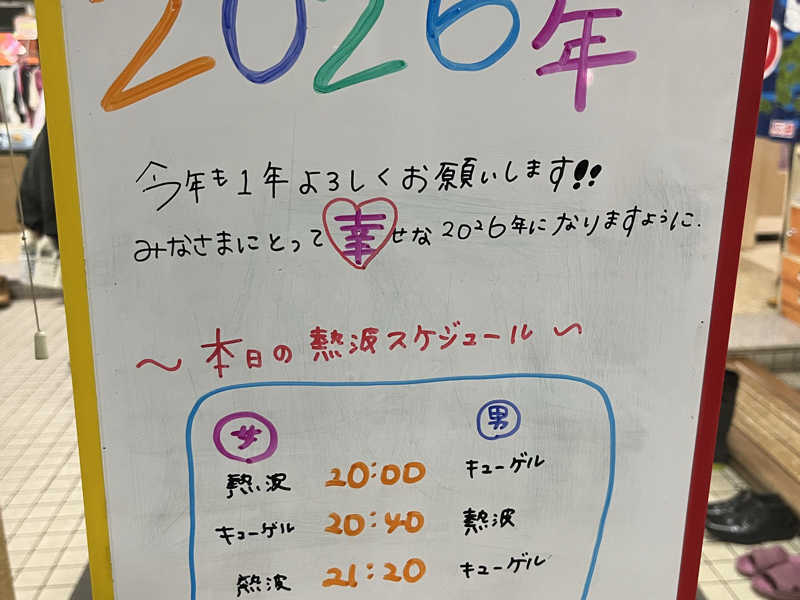 2026年
今年も1年よろしくお願いします!!
みなさまにとって幸せな2026年になりますように.
〜本日の熱波スケジュール〜
女 男
熱波 20:00 キューゲル
キューゲル 20:40 熱波
熱波 21:20 キューゲル